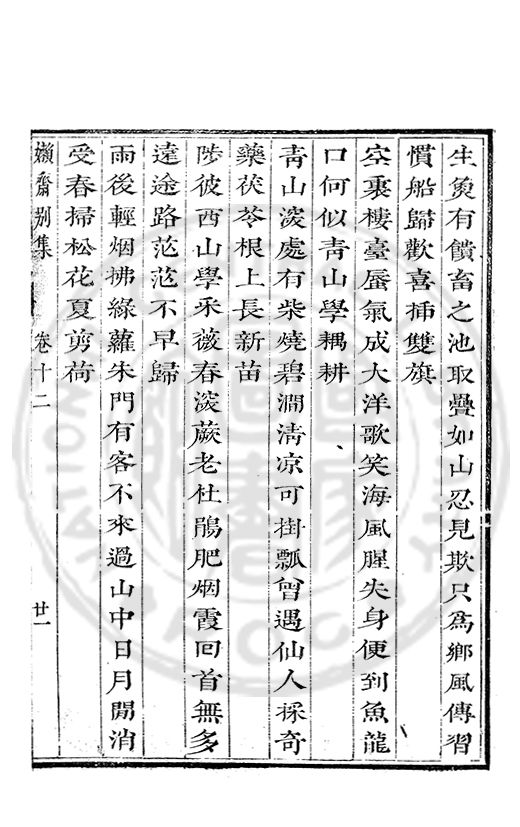 生魚有饋畜之池取疊如山忍見欺只為鄉風傳習
慣船歸歡喜揷雙旗
空裏樓臺蜃氣成大洋歌笑海風腥失身便到魚龍
口何似青山學耦耕
青山深處有柴燒碧澗淸凉可掛瓢曾遇仙人採奇
藥茯苓根上長新苗
陟彼西山學采薇春深蕨老杜鵑肥烟霞回首無多
遠途路茫茫不早歸
雨後輕烟拂綠蘿朱門有客不來過山中日月閒消
受春掃松花夏剪荷
嬾齋别集
卷十二
廿一